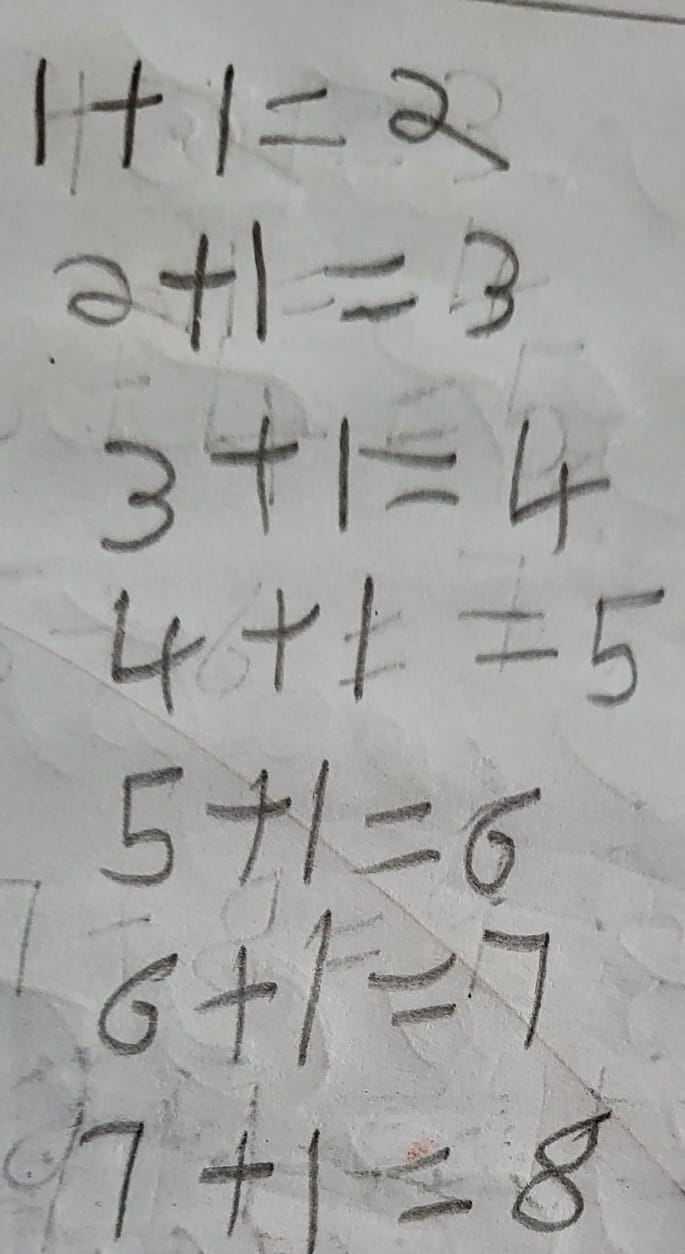 1+1=2
2+1=3
3+1=4
4+1=5
5+1=6
6+1=7
7+1=8